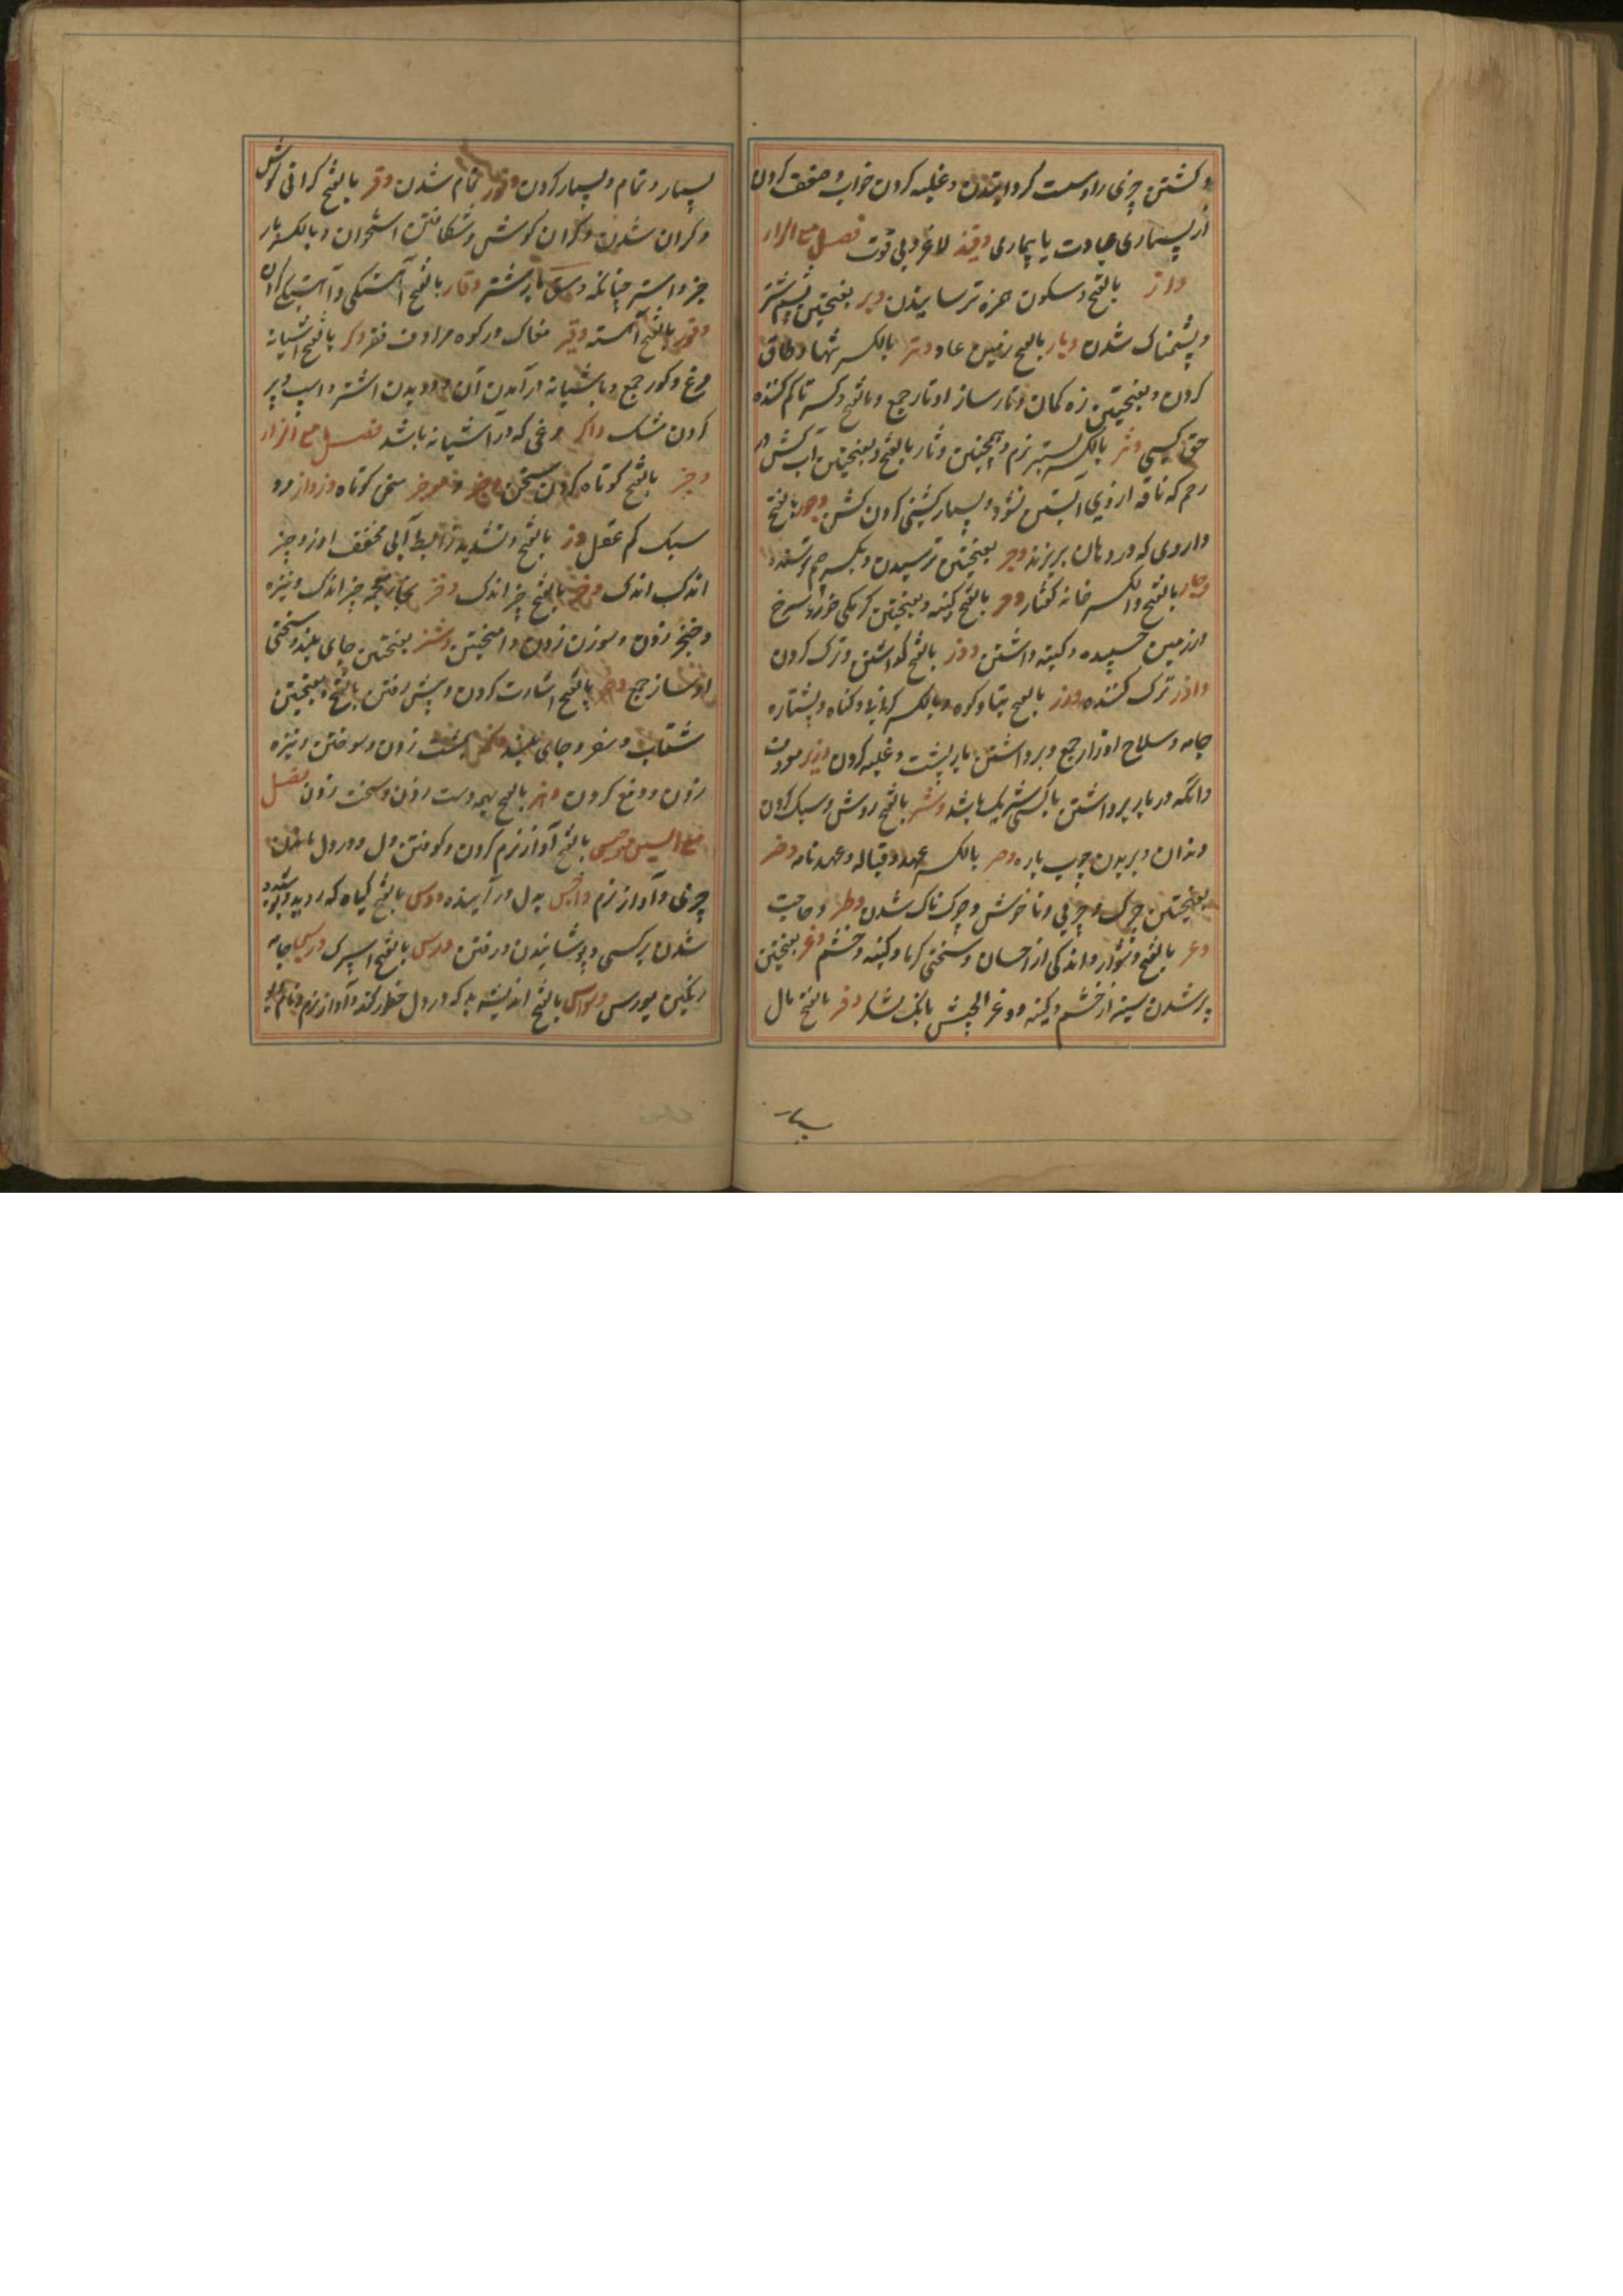 و کشتن چیزی را و سست گردانیدن و غلبه کردن خواب و ضعف کردن
از بسیاری عبادت یا بیماری وقیذ لاغر و بی قوت فصل مع الراء
وار بالفتح و سکون همزه ترسانیدن وبر بفتحتین پشم شتر
و پشمناک شدن وبار بالفتح زمین عاد وتر بالکسر تنها و طاق
کردن و بفتحتین زه کمان و تار ساز اوتار جمع و بالفتح و کسر تا کم کننده
حق کسی وثر بالکسر بستر نرم و همچنین وثار بالفتح و بفتحتین آب کشن در
رحم که ناقه از وی آبستن نشود و بسیار کشنی کردن کشن وجور بالفتح
داروی که در دهان بریزند وجر بفتحتین ترسیدن و بکسر جیم ترسنده
وجار بالفتح والکسر خانه کفتار وحر بالفتح کینه و بفتحتین کرمکی خورد سرخ
در زمین چسپیده و کینه داشتن وذر بالفتح گذاشتن و ترک کردن
واذر ترک کننده وزر بالفتح پناه و کوه و بالکسر گرانی و گناه و پشتاره
جامه و سلاح اوزار جمع و برداشتن بار بپشت و غلبه کردن وزیر معروف
و انکه در بار برداشتن با کسی شریک باشد وشر بالفتح روش و سبک کردن
دندان و بریدن چوب پاره وصر بالکسر عهد و قباله و عهدنامه وضر
بفتحتین چرک و چربی و ناخوش و چرکناک شدن وطر و حاجت
وعر بالفتح دشوار و اندکی از احسان و سختی گرما و کینه و خشم وغر بفتحتین
پر شدن سینه از خشم و کینه و وغر الجیش بانک لشکر وفر بالفتح مال
بسیار
بسیار و تمام و بسیار کردن وفور تمام شدن وقر بالفتح کرانی کوش
و کران شدن و کران کوش و شکافتن استخوان و بالکسر بار
خر و استر چنانکه وسق بار شتر وقار بالفتح آهستکی و آهستکی کران
وقور بالفتح آهسته وقیر مغاک در کوه مرادف فقر وکر بالفتح آشیانه
مرغ وکور جمع و باشیانه درآمدن آن و دویدن اشتر و اسپ و پر
کردن مشک واکر مرغی که در آشیانه باشد فصل مع الزاء
وجز بالفتح کوتاه کردن سخن وجیز و موجز سخن کوتاه وزواز مرد
سبک کم عقل وز بالفتح و تشدید زا بط آبی مخفف اوز وجیز
اندک اندک وخز بالفتح چیز اندک وخز بخاء معجمه چیز اندک و نیزه
و خنجر زدن و سوزن زدن و آمیختن وشز بفتحتین جای بلند و سختی
اوشاز جمع وفز بالفتح اشارت کردن و پیش رفتن بالفتح و بفتحتین
شتاب و سفر و جای بلند وکز مشت زدن و سوختن و نیزه
زدن و دفع کردن وهز بالفتح بهمه دست زدن و سخت زدن فصل
مع السین وجس بالفتح آواز نرم کردن و کوفتن دل و در دل ماندن
چیزی و آواز نرم واجس بدل درآینده ودس بالفتح گیاه که روید و پوشیده
شدن بر کسی و پوشانیدن و رفتن ورس بالفتح اسپرک وریس جامه
رنگین بورس وسواس بالفتح اندیشه بد که در دل خطور کند و آواز نرم و نام دیو